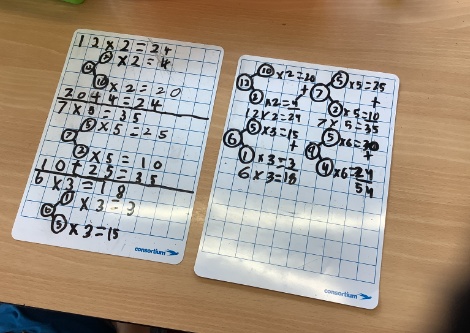 12 × 2 = 24
2 × 2 = 4
10 × 2 = 20
20 + 4 = 24
7 × 5 = 35
5 × 5 = 25
2 × 5 = 10
10 + 25 = 35
6 × 3 = 18
1 × 3 = 3
6
5 × 3 = 15
consortium
10 × 2 = 20
12 +
2 × 2 = 4
12 × 2 = 24
5 × 3 = 15
6 +
1 × 3 = 3
6 × 3 = 18
5 × 5 = 25
7 +
2 × 5 = 10
7 × 5 = 35
5 × 6 = 30
9 +
4 × 6 = 24
54
consortium